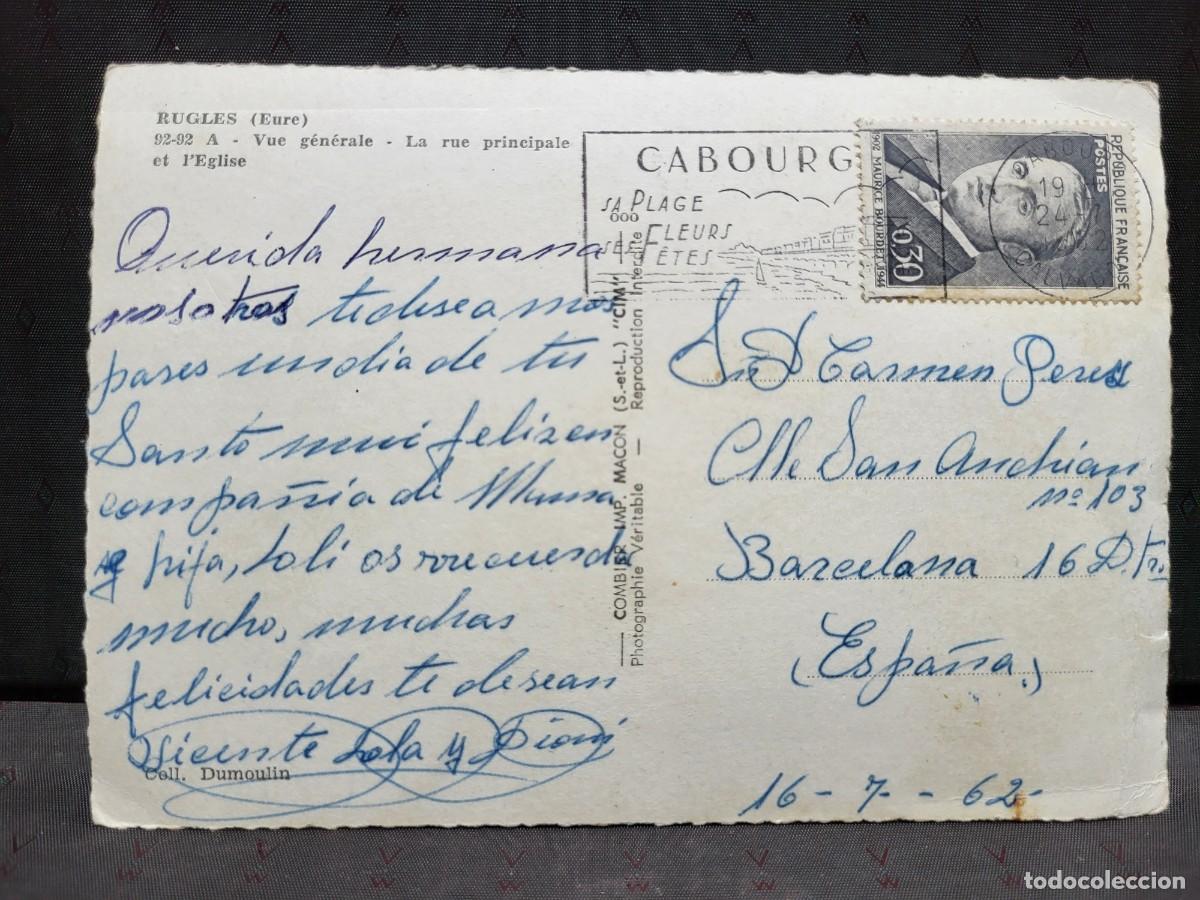 RUGLES (Eure)
92-92 A - Vue générale - La rue principale
et l'Eglise
Querida hermana
nosotros te deseamos
pases un dia de tu
Santo mui feliz en
compañia de Mama
y hija, Loli os recuerda
mucho, muchas
felicidades te desean
Vicente Lola y Dioni
Coll. Dumoulin
COMBIER IMP. MACON (S.-et-L.) "CIM"
Photographie Véritable — Reproduction Interdite
CABOURG
SA PLAGE
SES FLEURS
SES FÊTES
REPUBLIQUE FRANÇAISE
POSTES
1902 MAURICE BOURDET 1944
0,30
19
24-7
Carmen Peres
Clle San Andrian
nº 103
Barcelana 16 D.
(España)
16-7-62-
todocoleccion